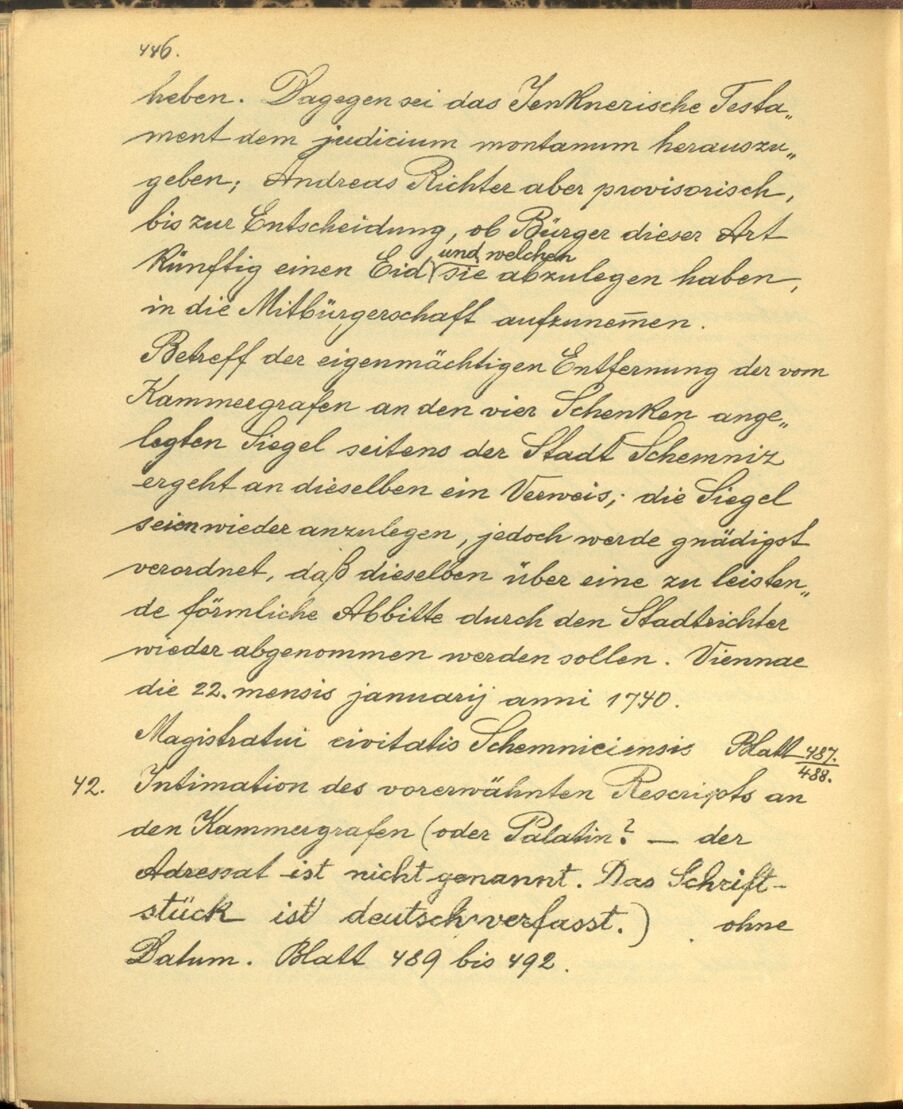 446.
heben. Dagegen sei das Jenknerische Testa„
ment dem judicium montanum herauszu„
geben; Andreas Richter aber provisorisch,
bis zur Entscheidung, ob Bürger dieser Art
und welchen
künftig einen Eid, sie abzulegen haben,
in die Mitbürgerschaft aufzunem̄en.
Betreff der eigenmächtigen Entfernung der vom
Kammergrafen an den vier Schenken ange„
legten Siegel seitens der Stadt Schemniz
ergeht an dieselben ein Verweis; die Siegel
seien wieder anzulegen, jedoch werde gnädigst
verordnet, daß dieselben über eine zu leisten„
de förmliche Abbitte durch den Stadtrichter
wieder abgenommen werden sollen. Viennae
die 22. mensis januarij anni 1740.
Magistratui civitatis Schemniciensis Blatt 487.
488.
42. Intimation des vorerwähnten Rescripts an
den Kammergrafen (oder Palatin? — der
Adressat ist nicht genannt. Das Schrift-
stück ist deutsch verfasst.) ohne
Datum. Blatt 489 bis 492.